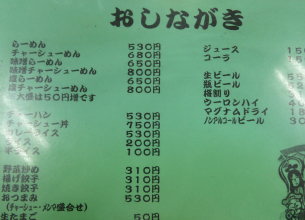 おしながき
らーめん 530円
チャーシューめん 680円
味噌らーめん 650円
味噌チャーシューめん 800円
塩らーめん 650円
塩チャーシューめん 800円
大盛は50円増です
チャーハン 530円
チャーシュー丼 750円
カレーライス 530円
ライス 200円
半ライス 100円
野菜炒め 310円
揚げ餃子 310円
焼き餃子 310円
おつまみ 530円
(チャーシュー・メンマ盛合せ)
生たまご 50円
ジュース
コーラ
生ビール
瓶ビール
梅割り
ウーロンハイ
マグナムドライ
ノンアルコールビール